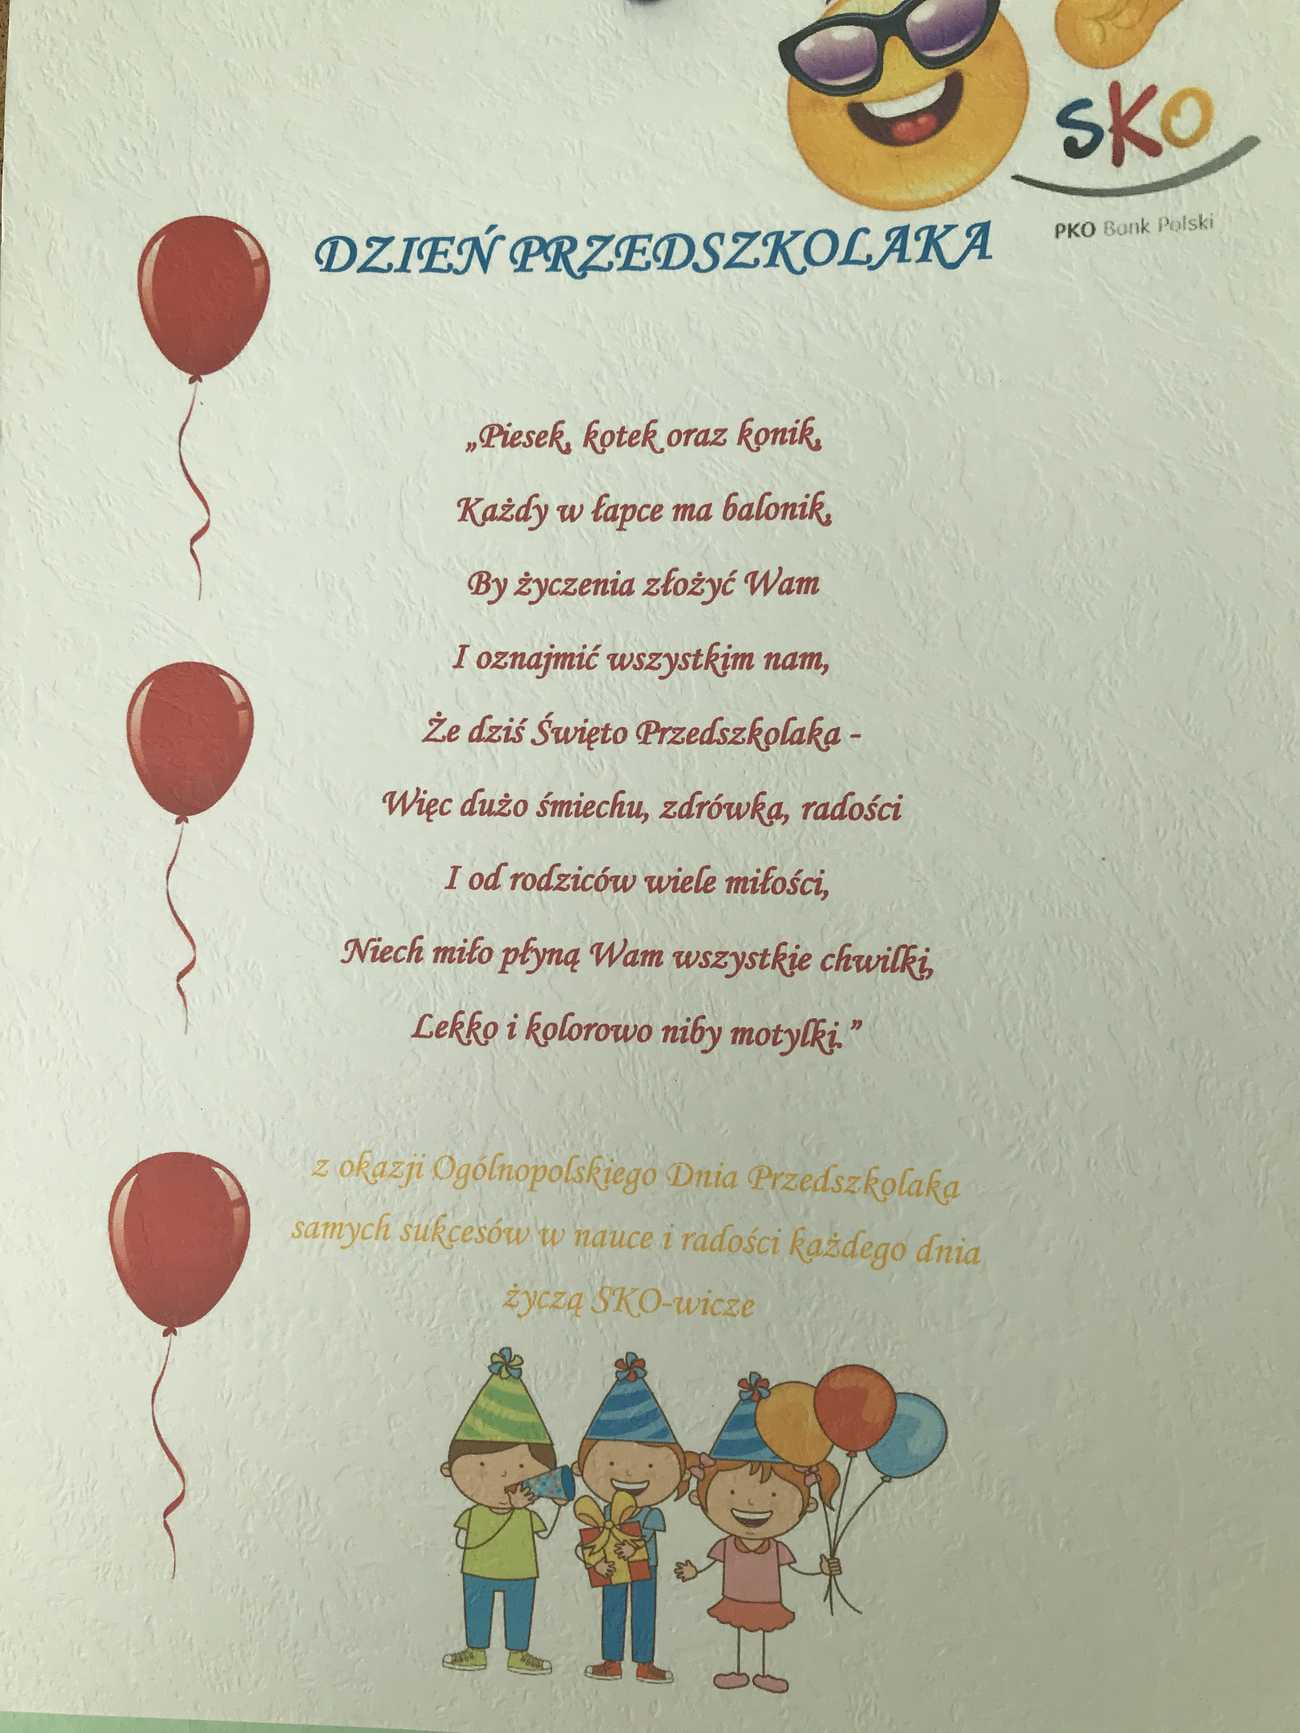 SKO
PKO Bank Polski
DZIEŃ PRZEDSZKOLAKA
„Piesek, kotek oraz konik,
Każdy w łapce ma balonik,
By życzenia złożyć Wam
I oznajmić wszystkim nam,
Że dziś Święto Przedszkolaka -
Więc dużo śmiechu, zdrówka, radości
I od rodziców wiele miłości,
Niech miło płyną Wam wszystkie chwilki,
Lekko i kolorowo niby motylki.”
z okazji Ogólnopolskiego Dnia Przedszkolaka
samych sukcesów w nauce i radości każdego dnia
życzą SKO-wicze